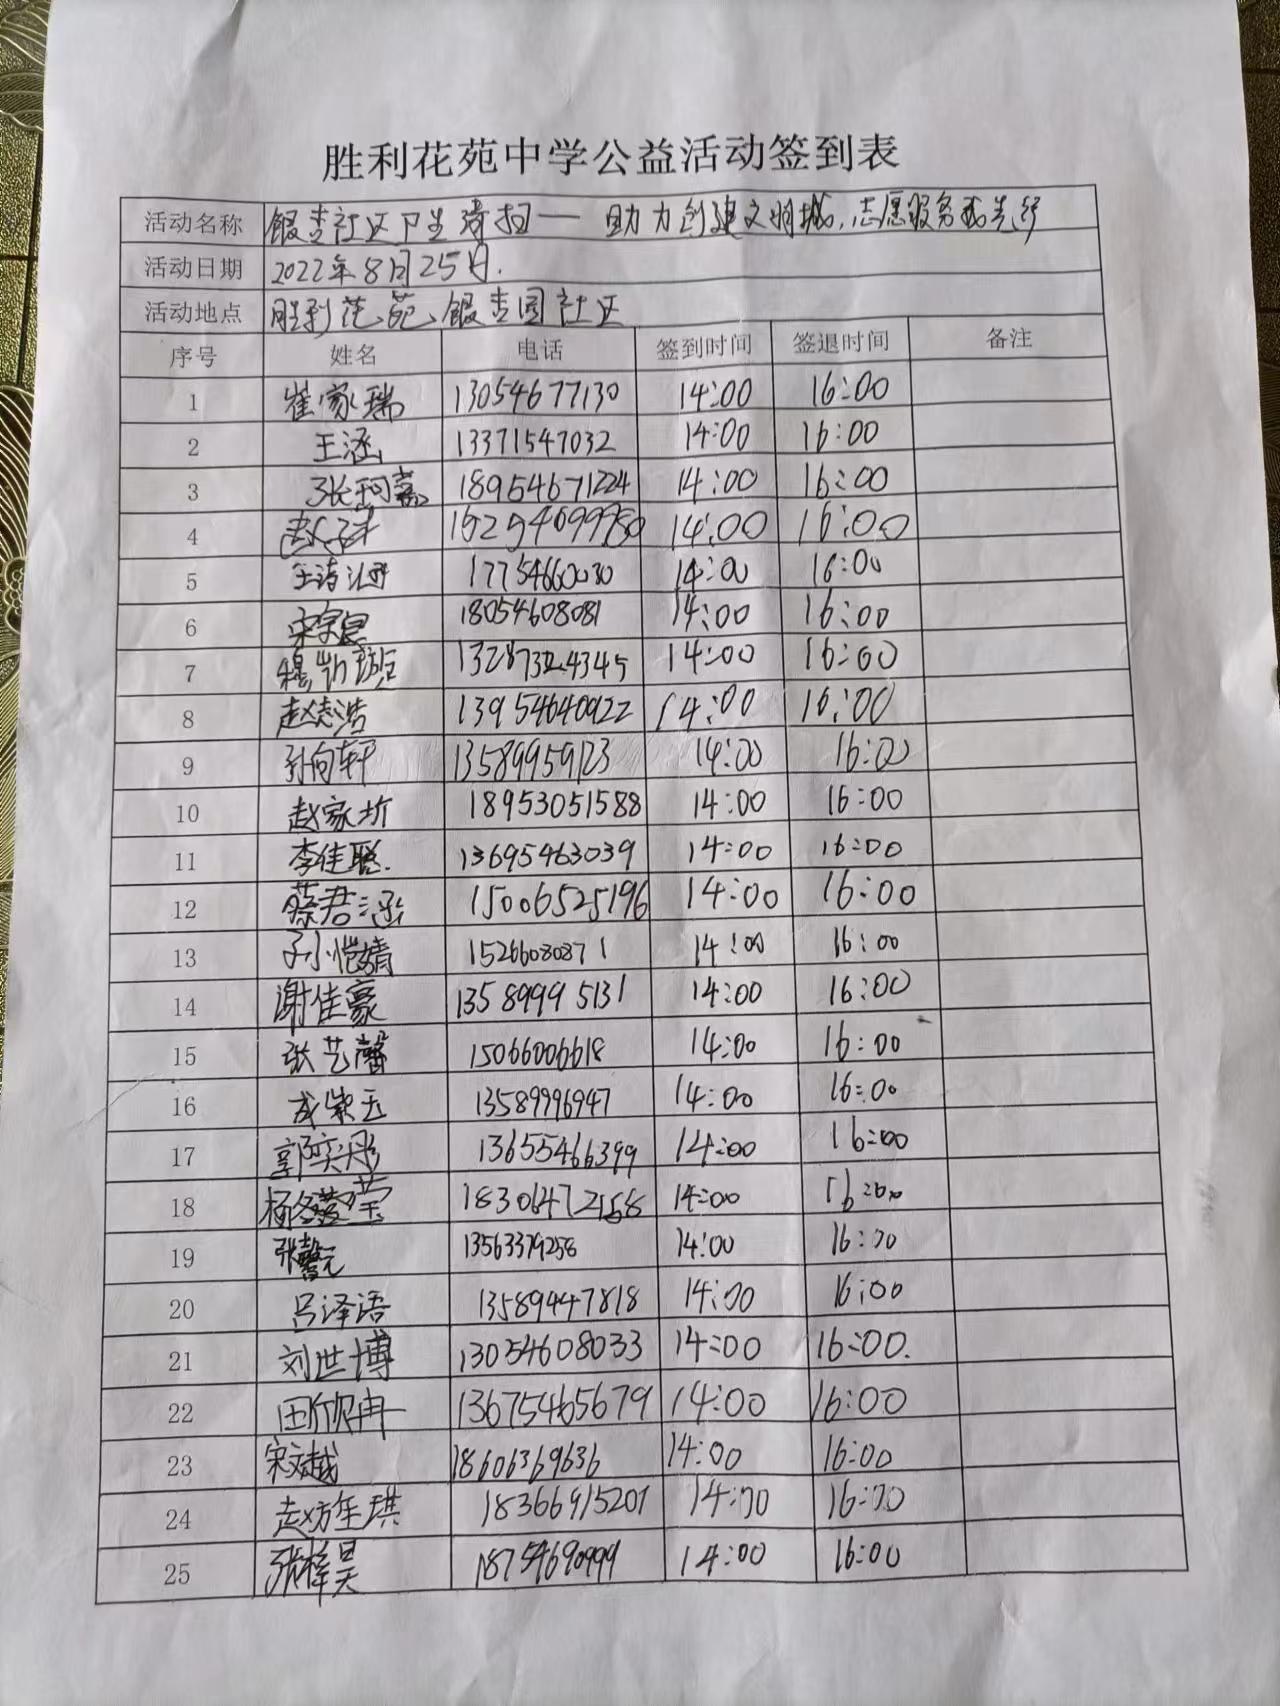 胜利花苑中学公益活动签到表
活动名称 银杏社区卫生清扫——助力创建文明城,志愿服务我先行
活动日期 2022年8月25日.
活动地点 胜利花苑、银杏园社区
序号 姓名 电话 签到时间 签退时间 备注
1 崔家瑞 13054677130 14:00 16:00
2 王涵 13371547032 14:00 16:00
3 张珂嘉 18954671224 14:00 16:00
4 14:00 16:00
5 17754660030 14:00 16:00
6 18054608081 14:00 16:00
7 穆 14:00 16:00
8 赵志浩 13954640922 14:00 16:00
9 孙向轩 13589959123 14:00 16:00
10 赵家圻 18953051588 14:00 16:00
11 李佳聪 13695463039 14:00 16:00
12 蔡君涵 15006525196 14:00 16:00
13 孙恺婧 15266080871 14:00 16:00
14 谢佳豪 13589995131 14:00 16:00
15 张艺馨 15066006618 14:00 16:00
16 成紫玉 13589996947 14:00 16:00
17 郭奕彤 13655466399 14:00 16:00
18 14:00 16:00
19 张馨元 13563379258 14:00 16:00
20 吕泽语 13589447818 14:00 16:00
21 刘世博 13054608033 14:00 16:00.
22 田欣冉 13675465679 14:00 16:00
23 宋文越 18606369636 14:00 16:00
24 18366915201 14:00 16:00
25 张梓昊 18754690999 14:00 16:00